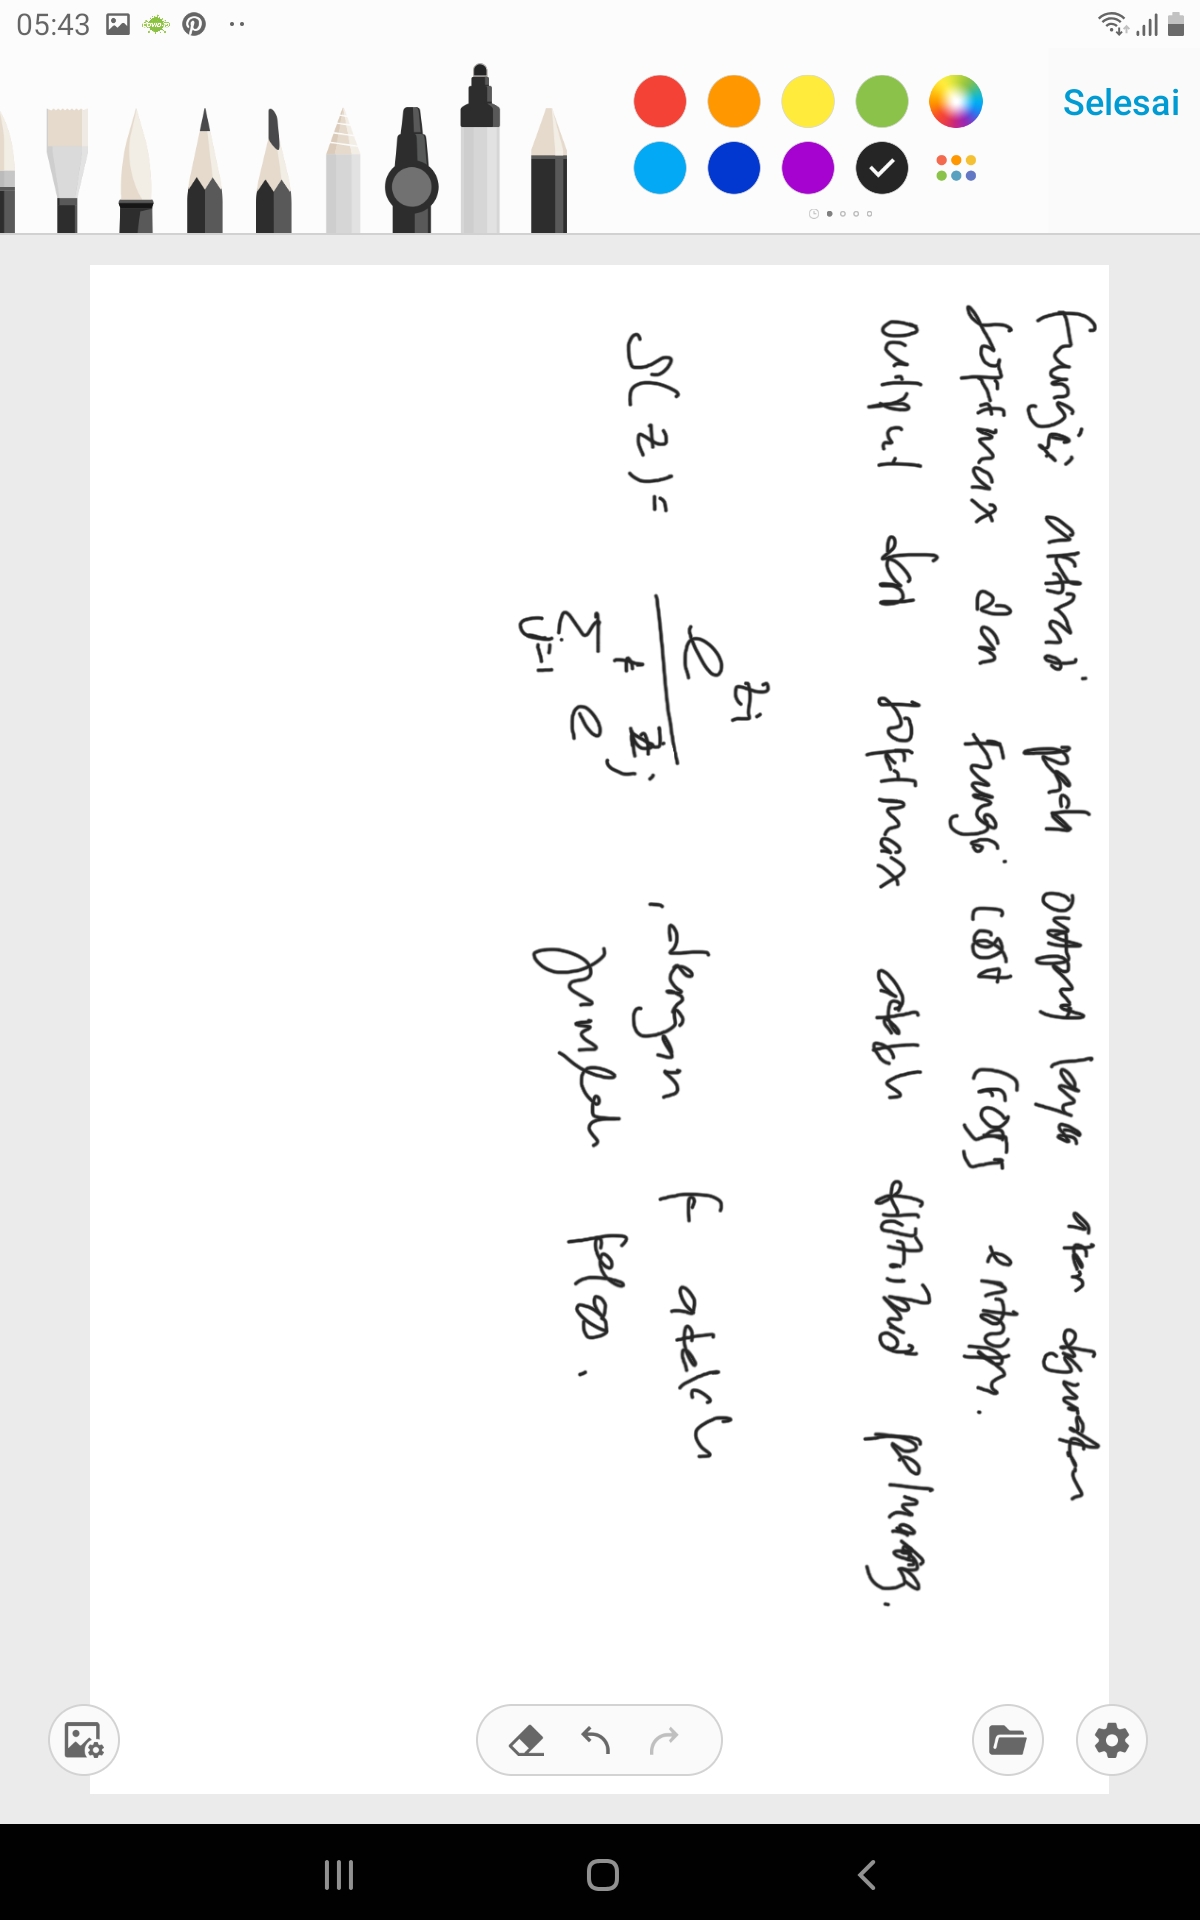 05:43
Selesai
Fungsi aktivasi pada output layer akan digunakan
softmax dan fungsi cost cross entropy.
Output dari softmax adalah distribusi peluang.
S(z) = e^{z_i} / Σ_{j=1}^{k} e^{z_j} , dengan k adalah
jumlah kelas.